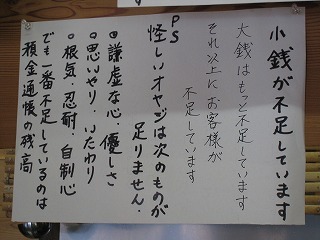 小銭が不足しています
大銭はもっと不足しています
それ以上にお客様が
不足しています
PS
怪しいオヤジは次のものが
足りません.
◎謙虚な心.優しさ
◎思いやり.いたわり
◎根気.忍耐.自制心
でも一番不足しているのは
預金通帳の残高